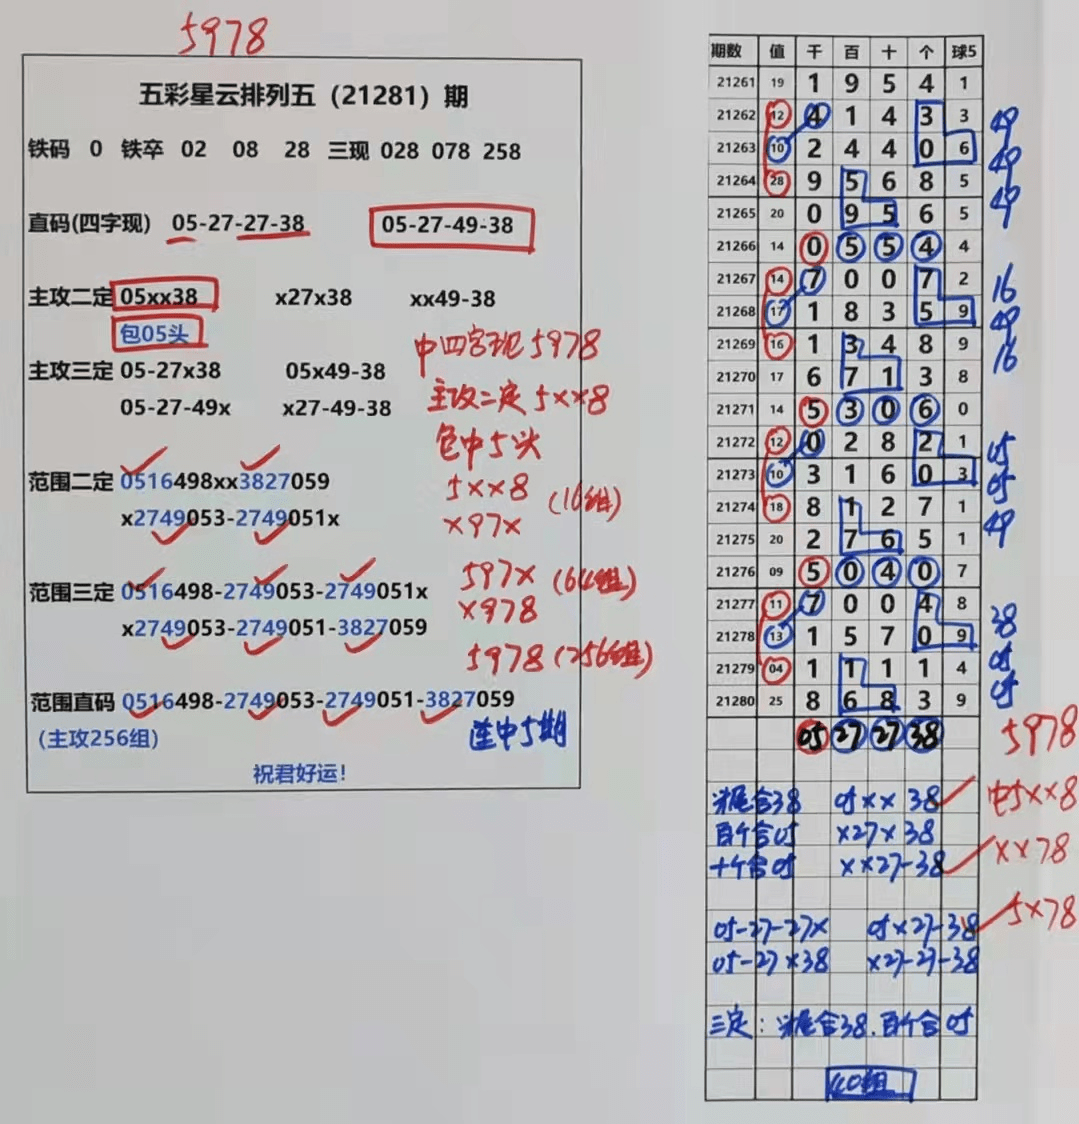 5978
五彩星云排列五（21281）期
铁码 0 铁卒 02 08 28 三现 028 078 258
直码(四字现) 05-27-27-38 05-27-49-38
主攻二定 05xx38 x27x38 xx49-38
包05头
中四字现5978
主攻三定 05-27x38 05x49-38
主攻二定5xx8
05-27-49x x27-49-38
包中5头
范围二定 0516498xx3827059
5xx8 (16组)
x2749053-2749051x
x97x
范围三定 0516498-2749053-2749051x
597x (64组)
x2749053-2749051-3827059
x978
5978 (256组)
范围直码 0516498-2749053-2749051-3827059
(主攻256组)
连中5期
祝君好运!
期数 值 千 百 十 个 球5
21261 19 1 9 5 4 1
21262 12 4 1 4 3 3 49
21263 10 2 4 4 0 6 49
21264 28 9 5 6 8 5 49
21265 20 0 9 5 6 5
21266 14 0 5 5 4 4
21267 14 7 0 0 7 2 16
21268 17 1 8 3 5 9 49
21269 16 1 3 4 8 9 16
21270 17 6 7 1 3 8
21271 14 5 3 0 6 0
21272 12 0 2 8 2 1 05
21273 10 3 1 6 0 3 05
21274 18 8 1 2 7 1 49
21275 20 2 7 6 5 1
21276 09 5 0 4 0 7
21277 11 7 0 0 4 8 38
21278 13 1 5 7 0 9
21279 04 1 1 1 1 4 05
21280 25 8 6 8 3 9 05
05 27 27 38 5978
头尾合38 05xx 38 中5xx8
百个合05 x27x 38
十个合05 xx27-38 xx78
05-27-27x 05x27-38 5x78
05-27x38 x27-27-38
三定：头尾合38.百个合05
40组